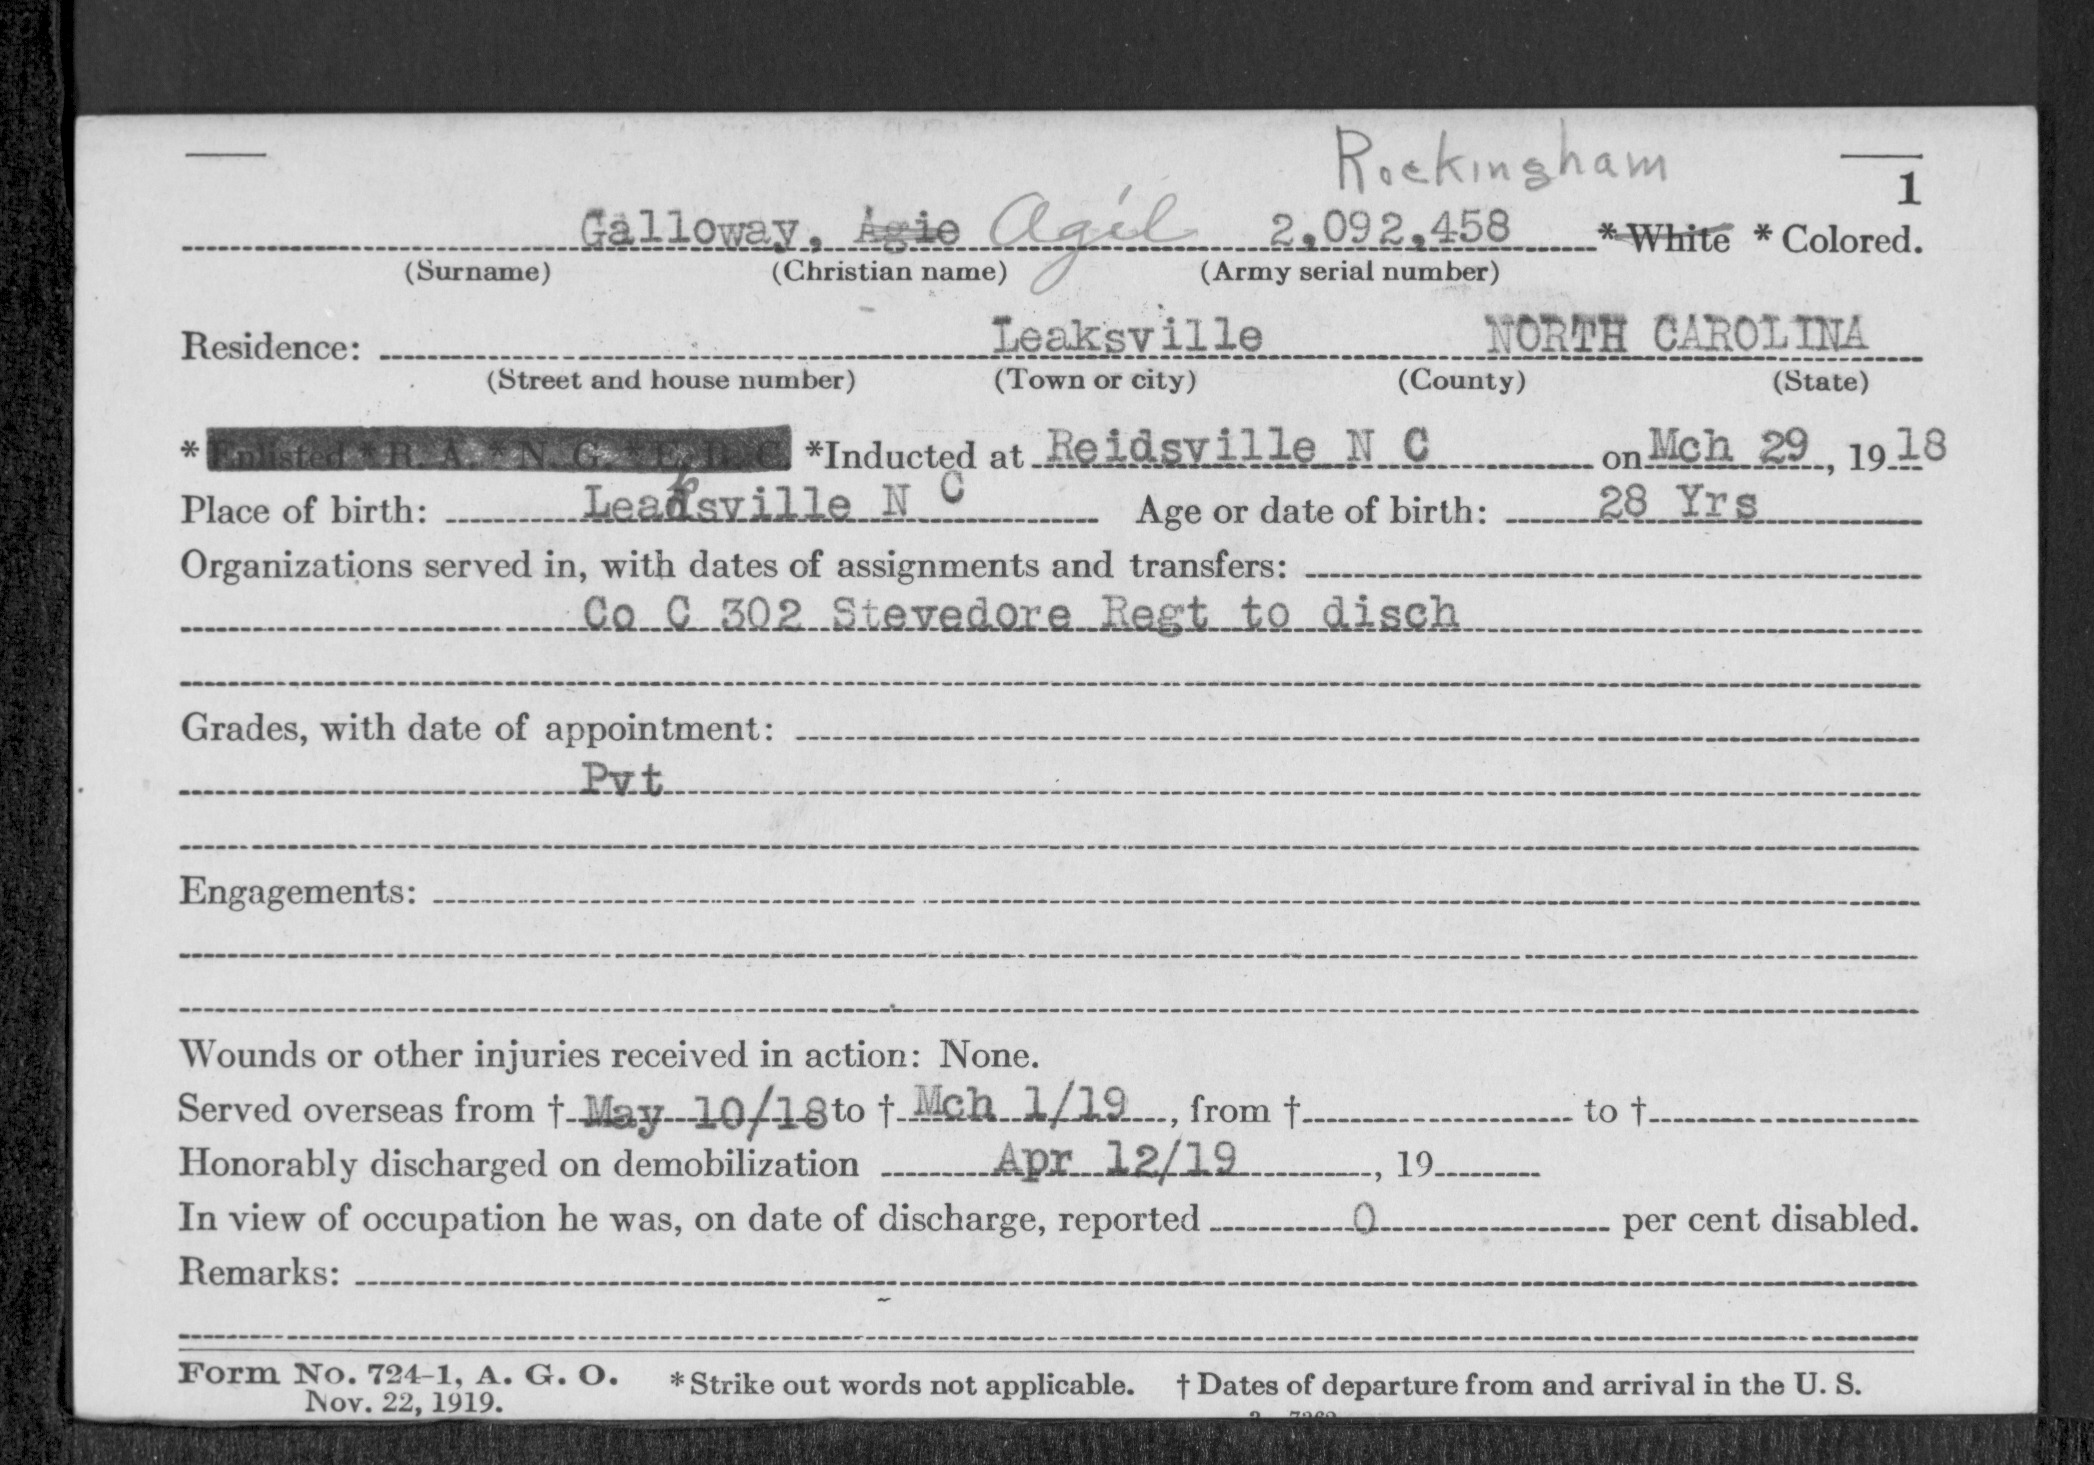 Rockingham
1
Galloway, Agie Agil 2,092,458 * White * Colored.
(Surname) (Christian name) (Army serial number)
Residence: Leaksville NORTH CAROLINA
(Street and house number) (Town or city) (County) (State)
* Enlisted * R. A. * N. G. * E. R. C. *Inducted at Reidsville N C on Mch 29, 1918
Place of birth: Leaksville N C Age or date of birth: 28 Yrs
Organizations served in, with dates of assignments and transfers:
Co C 302 Stevedore Regt to disch
Grades, with date of appointment:
Pvt
Engagements:
Wounds or other injuries received in action: None.
Served overseas from † May 10/18 to † Mch 1/19, from † to †
Honorably discharged on demobilization Apr 12/19, 19
In view of occupation he was, on date of discharge, reported 0 per cent disabled.
Remarks:
Form No. 724-1, A. G. O. * Strike out words not applicable. † Dates of departure from and arrival in the U. S.
Nov. 22, 1919.